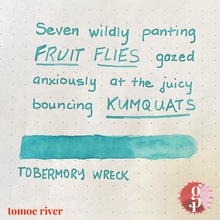 Seven wildly panting
FRUIT FLIES gazed
anxiously at the juicy
bouncing KUMQUATS
TOBERMORY WRECK
tomoe river
gp